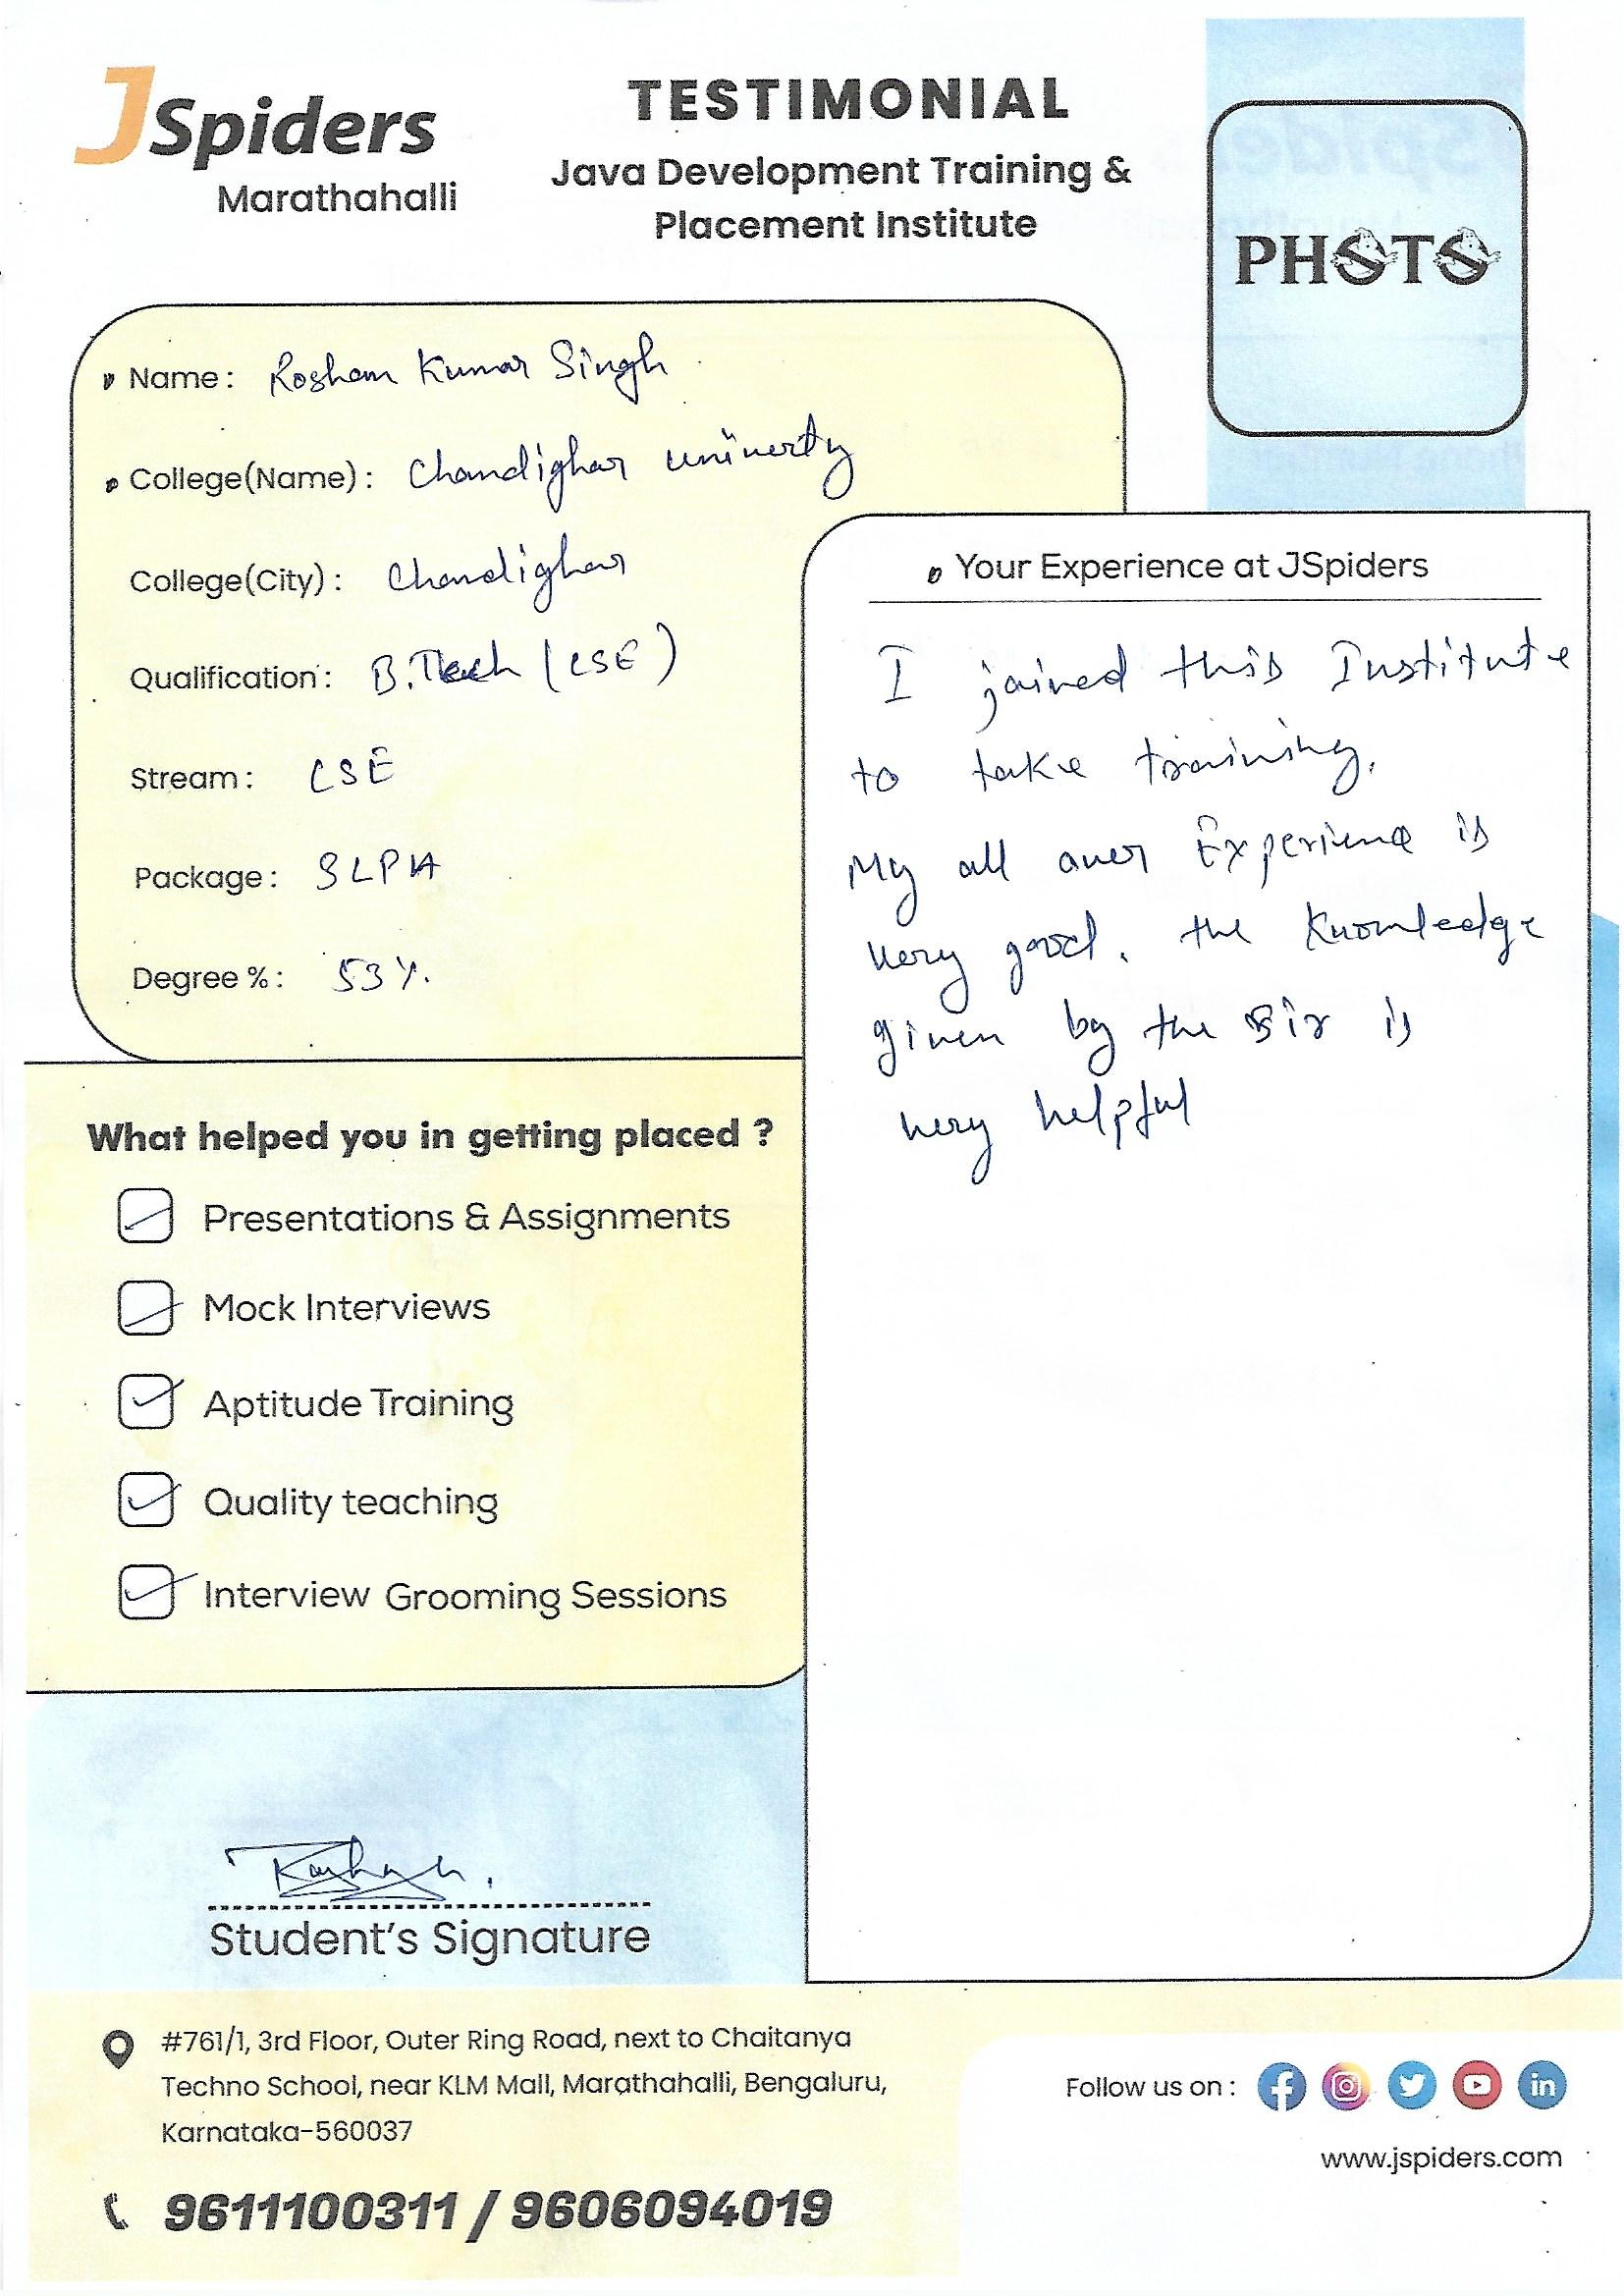 JSpiders
Marathahalli
TESTIMONIAL
Java Development Training &
Placement Institute
PHOTO
Name: Roshan Kumar Singh
College(Name): Chandighar univerty
College(City): Chandighar
Qualification: B.Tech (CSE)
Stream: CSE
Package: 3LPA
Degree %: 53%.
What helped you in getting placed ?
Presentations & Assignments
Mock Interviews
Aptitude Training
Quality teaching
Interview Grooming Sessions
Student's Signature
Your Experience at JSpiders
I joined this Institute
to take training.
My all over Experience is
very good. the Knowledge
given by the Sir is
very helpful
#761/1, 3rd Floor, Outer Ring Road, next to Chaitanya
Techno School, near KLM Mall, Marathahalli, Bengaluru,
Karnataka-560037
9611100311 / 9606094019
Follow us on :
www.jspiders.com